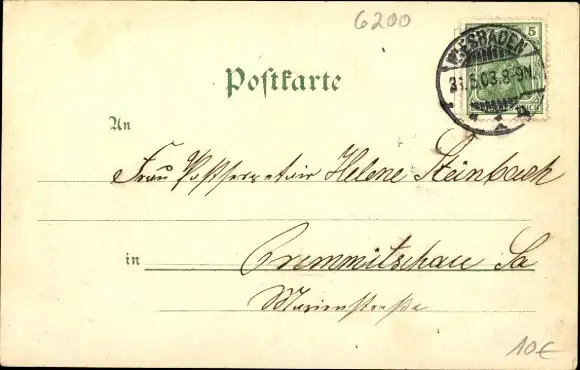 6200
WIESBADEN
5
31.5.03.8-9V.
1
Postkarte
An
Frau Postsecretair Helene Steinbach
in Crimmitschau Sa
Marienstraße
10€